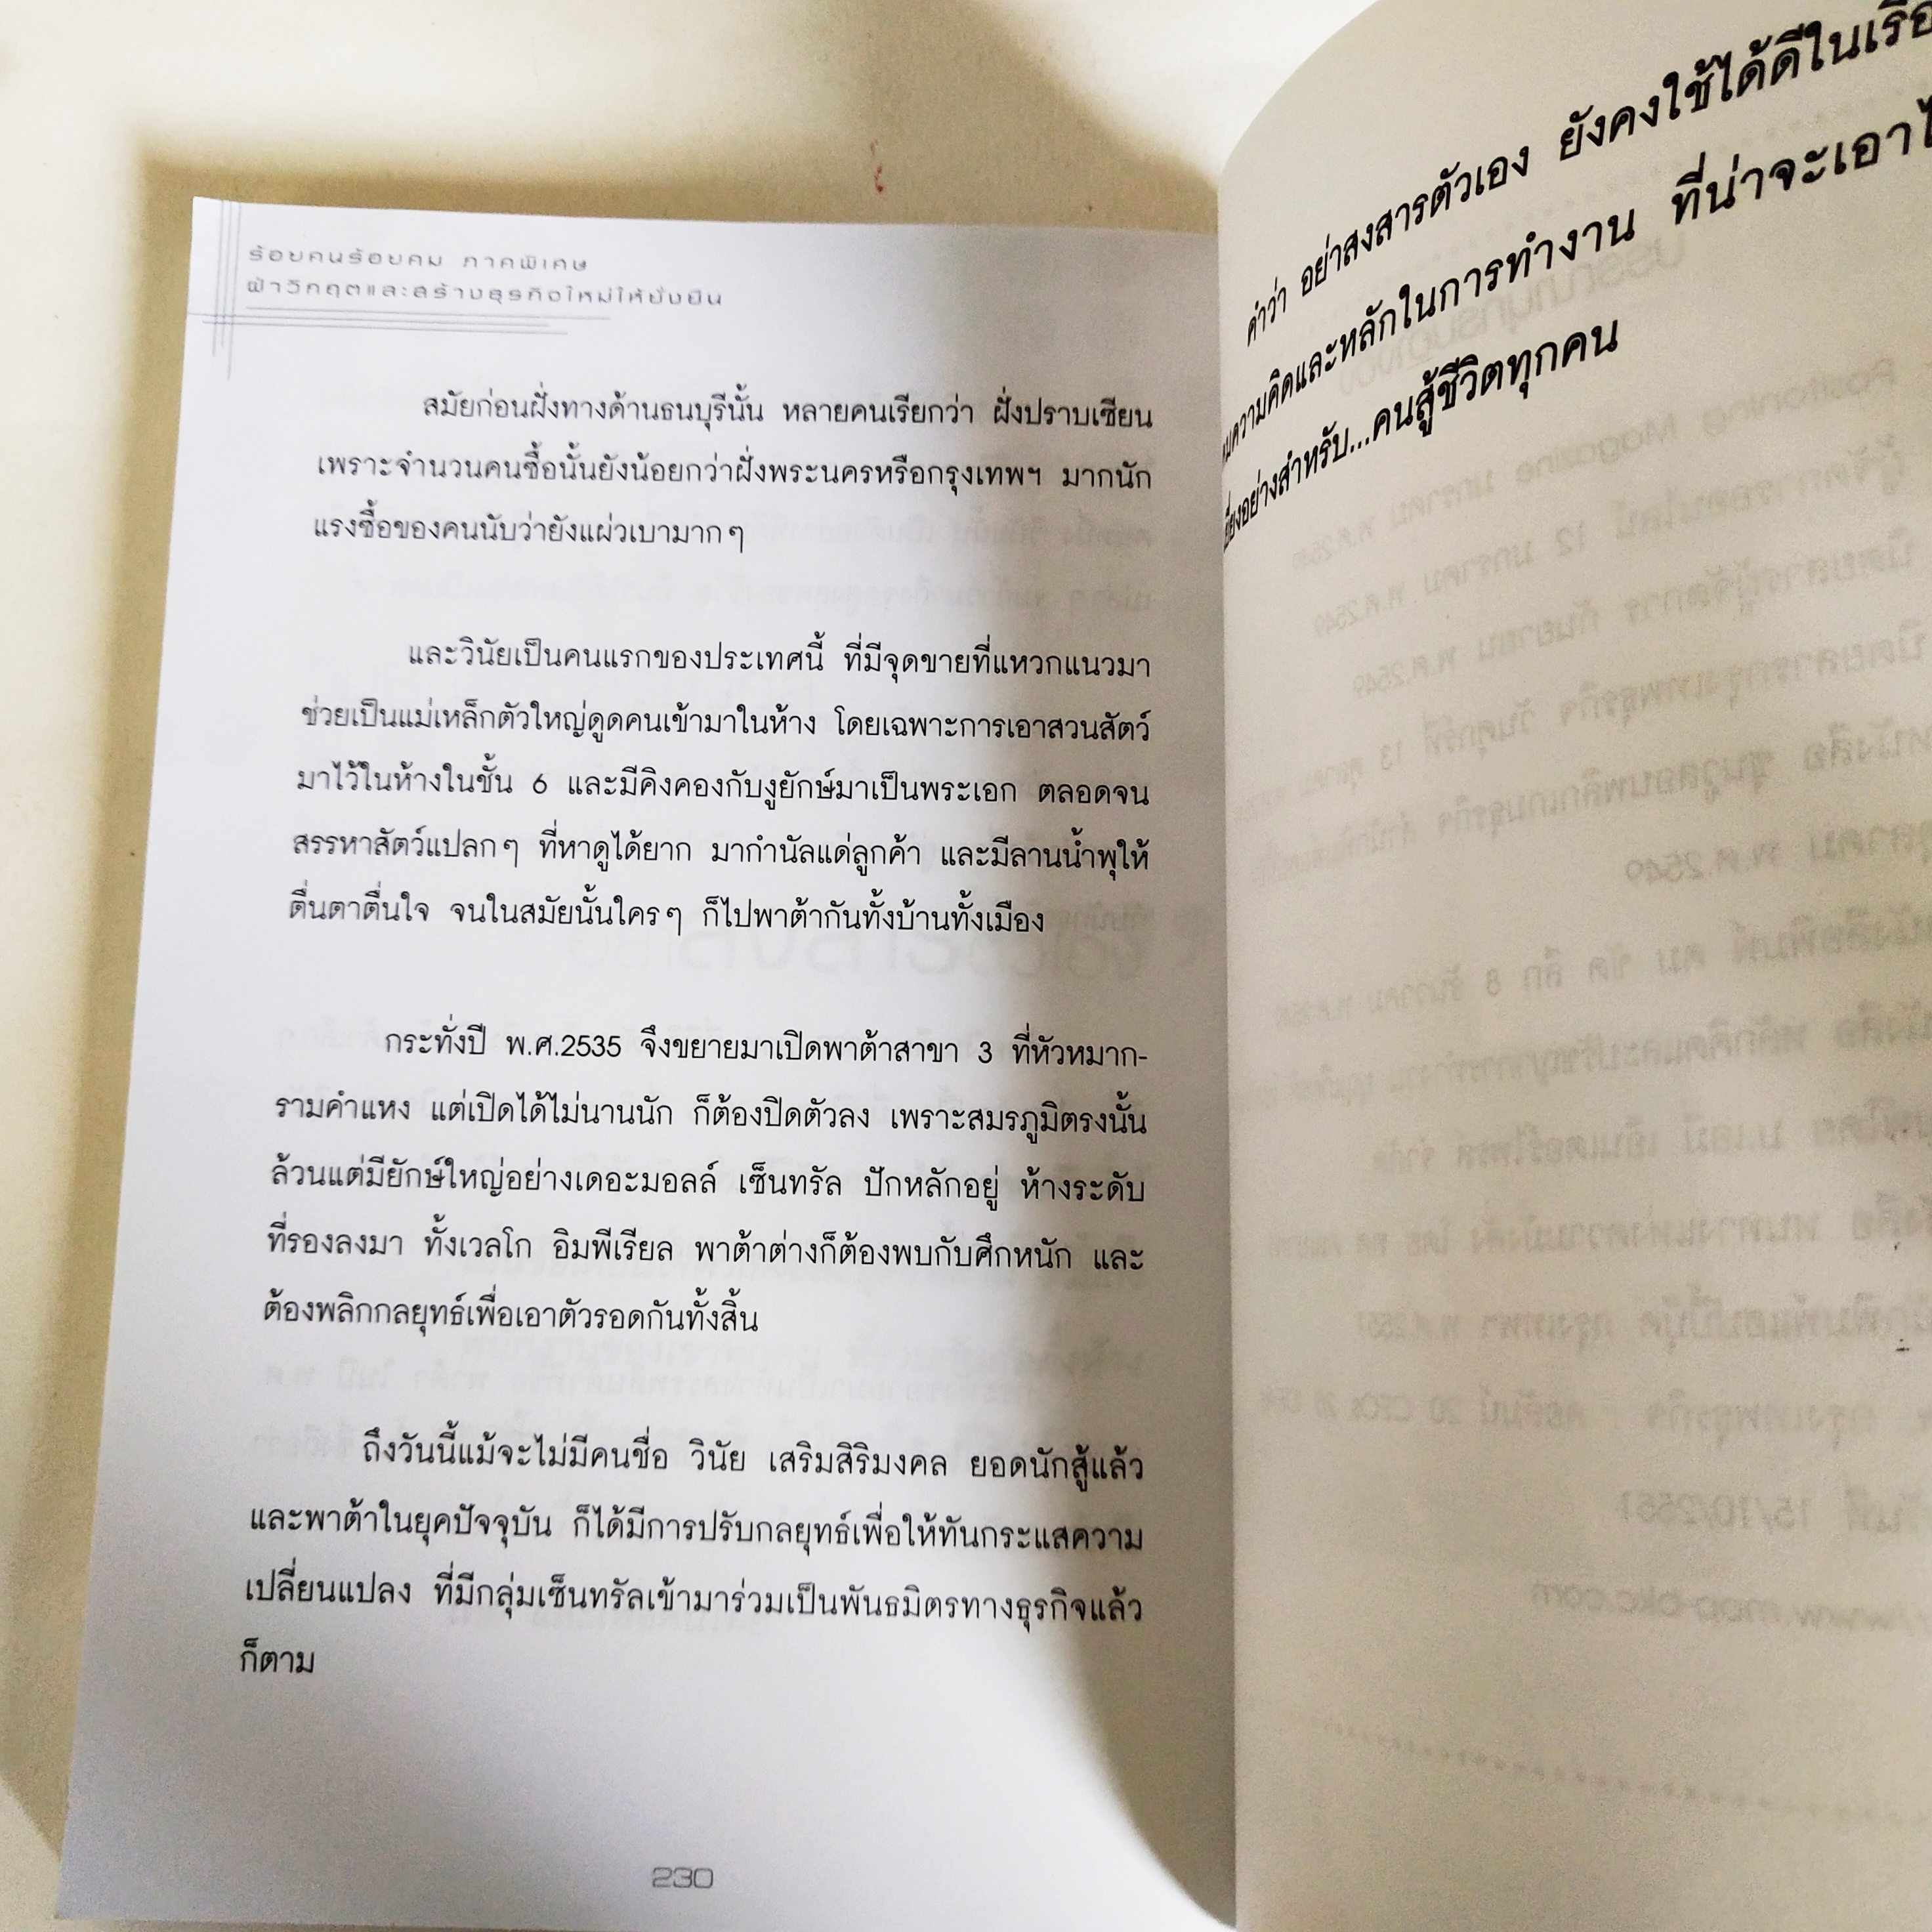 ร้อยคนร้อยคม ภาคพิเศษ
ฝ่าวิกฤตและสร้างธุรกิจใหม่ให้ยั่งยืน
สมัยก่อนฝั่งทางด้านธนบุรีนั้น หลายคนเรียกว่า ฝั่งปราบเซียน
เพราะจำนวนคนซื้อนั้นยังน้อยกว่าฝั่งพระนครหรือกรุงเทพฯ มากนัก
แรงซื้อของคนนับว่ายังแผ่วเบามากๆ
และวินัยเป็นคนแรกของประเทศนี้ ที่มีจุดขายที่แหวกแนวมา
ช่วยเป็นแม่เหล็กตัวใหญ่ดูดคนเข้ามาในห้าง โดยเฉพาะการเอาสวนสัตว์
มาไว้ในห้างในชั้น 6 และมีคิงคองกับงูยักษ์มาเป็นพระเอก ตลอดจน
สรรหาสัตว์แปลกๆ ที่หาดูได้ยาก มากำนัลแด่ลูกค้า และมีลานน้ำพุให้
ตื่นตาตื่นใจ จนในสมัยนั้นใครๆ ก็ไปพาต้ากันทั้งบ้านทั้งเมือง
กระทั่งปี พ.ศ.2535 จึงขยายมาเปิดพาต้าสาขา 3 ที่หัวหมาก-
รามคำแหง แต่เปิดได้ไม่นานนัก ก็ต้องปิดตัวลง เพราะสมรภูมิตรงนั้น
ล้วนแต่มียักษ์ใหญ่อย่างเดอะมอลล์ เซ็นทรัล ปักหลักอยู่ ห้างระดับ
ที่รองลงมา ทั้งเวลโก อิมพีเรียล พาต้าต่างก็ต้องพบกับศึกหนัก และ
ต้องพลิกกลยุทธ์เพื่อเอาตัวรอดกันทั้งสิ้น
ถึงวันนี้แม้จะไม่มีคนชื่อ วินัย เสริมสิริมงคล ยอดนักสู้แล้ว
และพาต้าในยุคปัจจุบัน ก็ได้มีการปรับกลยุทธ์เพื่อให้ทันกระแสความ
เปลี่ยนแปลง ที่มีกลุ่มเซ็นทรัลเข้ามาร่วมเป็นพันธมิตรทางธุรกิจแล้ว
ก็ตาม
230
คำว่า อย่าสงสารตัวเอง ยังคงใช้ได้ดีในเรื่อ
ความคิดและหลักในการทำงาน ที่น่าจะเอาไ
อย่างสำหรับ...คนสู้ชีวิตทุกคน